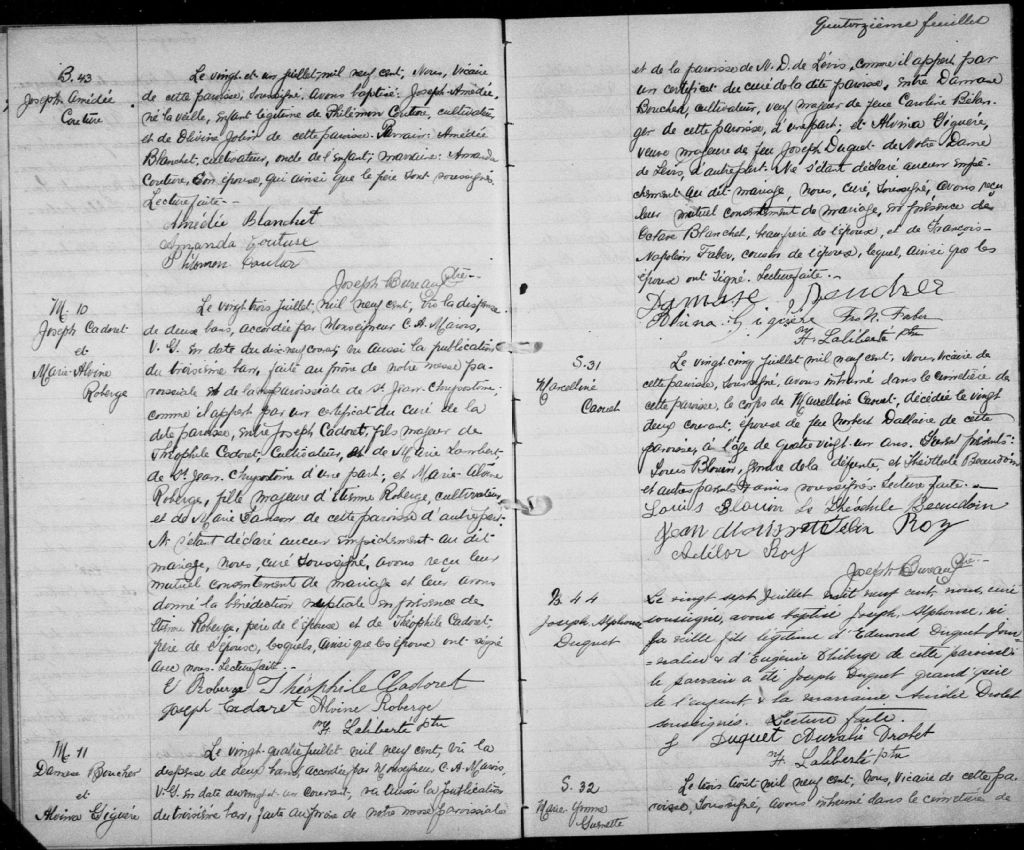 B. 43
Joseph Amédée
Couture
Le vingt et un juillet mil neuf cent, Nous, Vicaire
de cette paroisse, soussigné, avons baptisé Joseph Amédée,
né la veille, enfant légitime de Philémon Couture, cultivateur,
et de Olivine Jolin de cette paroisse. Parrain: Amédée
Blanchet, cultivateur, oncle de l'enfant; marraine: Amanda
Couture, son épouse, qui ainsi que le père sont soussignés.
Lecture faite.-
Amédée Blanchet
Amanda Couture
Philémon Coutur
Joseph Bureau Ptre
M. 10
Joseph Cadoret
et
Marie-Alvine
Roberge
Le vingt trois juillet, mil neuf cent, Vu la dispense
de deux bans, accordée par Monseigneur C. A. Marois,
V. G. en date du dix-neuf courant, vu aussi la publication
du troisième ban, faite au prône de notre messe pa-
roissiale et de la messe paroissiale de St Jean Chrysostôme,
comme il appert par un certificat du Curé de la
dite paroisse, entre Joseph Cadoret, fils majeur de
Théophile Cadoret, Cultivateur, et de Marie Lambert
de St Jean Chrysostôme d'une part; et Marie-Alvine
Roberge, fille majeure d'Etienne Roberge, cultivateur,
et de Marie Samson de cette paroisse d'autre part.
Ne s'étant déclaré aucun empêchement au dit
mariage, nous, curé soussigné, avons reçu leur
mutuel consentement de mariage et leur avons
donné la bénédiction nuptiale en présence de
Etienne Roberge, père de l'épouse et de Théophile Cadoret,
père de l'épouse, lesquels, ainsi que les époux ont signé
avec nous. Lecture faite.-
E Roberge Théophile Cadoret
Joseph Cadaret Alvine Roberge
F. Laliberté ptre
M. 11
Damase Boucher
et
Alvina Giguère
Le vingt-quatre juillet mil neuf cent, vu la
dispense de deux bans, accordée par Monseigneur C. A. Marois,
V. G. en date du vingt et un courant, vu aussi la publication
du troisième ban, faite au prône de notre messe paroissiale
Quatorzième feuillet
et de la paroisse de N. D. de Lévis, comme il appert par
un certificat du curé de la dite paroisse, entre Damase
Boucher, cultivateur, veuf majeur de feue Caroline Bélan-
ger de cette paroisse, d'une part; et Alvina Giguère,
veuve majeure de feu Joseph Duquet de Notre Dame
de Lévis, d'autre part. Ne s'étant déclaré aucun empê-
chement au dit mariage, Nous, curé, soussigné, avons reçu
leur mutuel consentement de mariage, en présence de
Octave Blanchet, beau-frère de l'époux, et de François-
Napoléon Faber, cousin de l'épouse, lequel, ainsi que les
époux ont signé. Lecture faite.-
Damase Boucher
Alvina Gigière Frs N. Faber
F. Laliberté ptre
S. 31
Marcelline
Carret
Le vingt cinq juillet mil neuf cent, Nous, vicaire de
cette paroisse, soussigné, avons inhumé dans le cimetière de
cette paroisse, le corps de Marcelline, décédée le vingt
deux courant, épouse de feu Norbert Dallaire de cette
paroisse, à l'âge de quatre vingt-un ans. Furent présents:
Louis Blouin, gendre de la défunte, et Théophile Beaudoin
et autres parents & amis soussignés. Lecture faite.-
Louis Blouin Théophile Beaudoin
Jean Felix Roy
Adélor Roy
Joseph Bureau Ptre
B 44
Joseph, Alphonse
Duquet
Le vingt sept juillet mil neuf cent, nous, curé
soussigné, avons baptisé Joseph, Alphonse, né
la veille fils légitime d'Edmond Duquet Jour
=nalier & d'Eugénie Théberge de cette paroisse.
le parrain a été Joseph Duquet grand père
de l'enfant, & la marraine Aurélie Drolet
soussignés. Lecture faite.
J Duquet Aurélie Drolet
F. Laliberté ptre
S. 32
Marie-Yvonne
Le trois Août mil neuf cent, Nous, vicaire de cette pa-
roisse, soussigné, avons inhumé dans le cimetière de